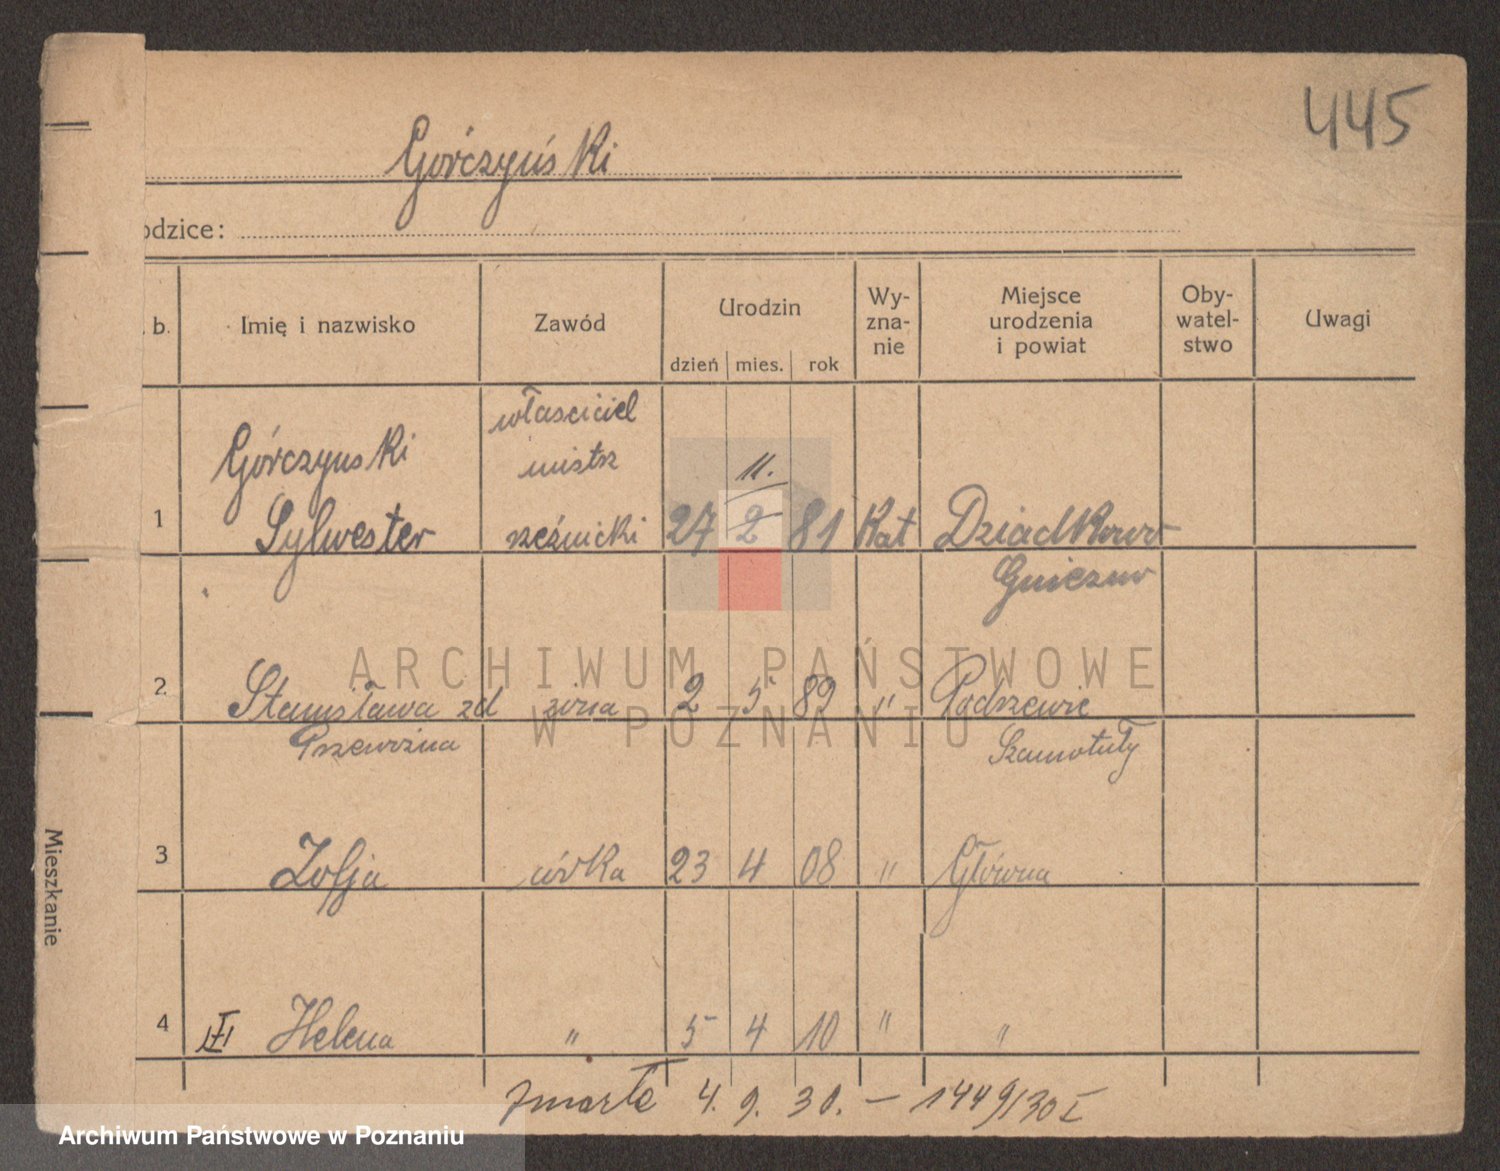 445
Górczyński
odzice:
. b. Imię i nazwisko Zawód Urodzin dzień mies. rok Wy-zna-nie Miejsce urodzenia i powiat Oby-watel-stwo Uwagi
właściciel
Górczynski mistrz 11.
1 Sylwester rzeźnicki 27 2 81 Kat Dziadkowo
Gniezno
ARCHIWUM PAŃSTWOWE
2 Stanisława zd żona 2 5 89 " Podrzewie
W POZNANIU
Szamotuły
3 Zofja córka 23 4 08 " Główna
4 Helena " 5 4 10 " "
zmarła 4. 9. 30. — 1449/30 I
Mieszkanie
Archiwum Państwowe w Poznaniu